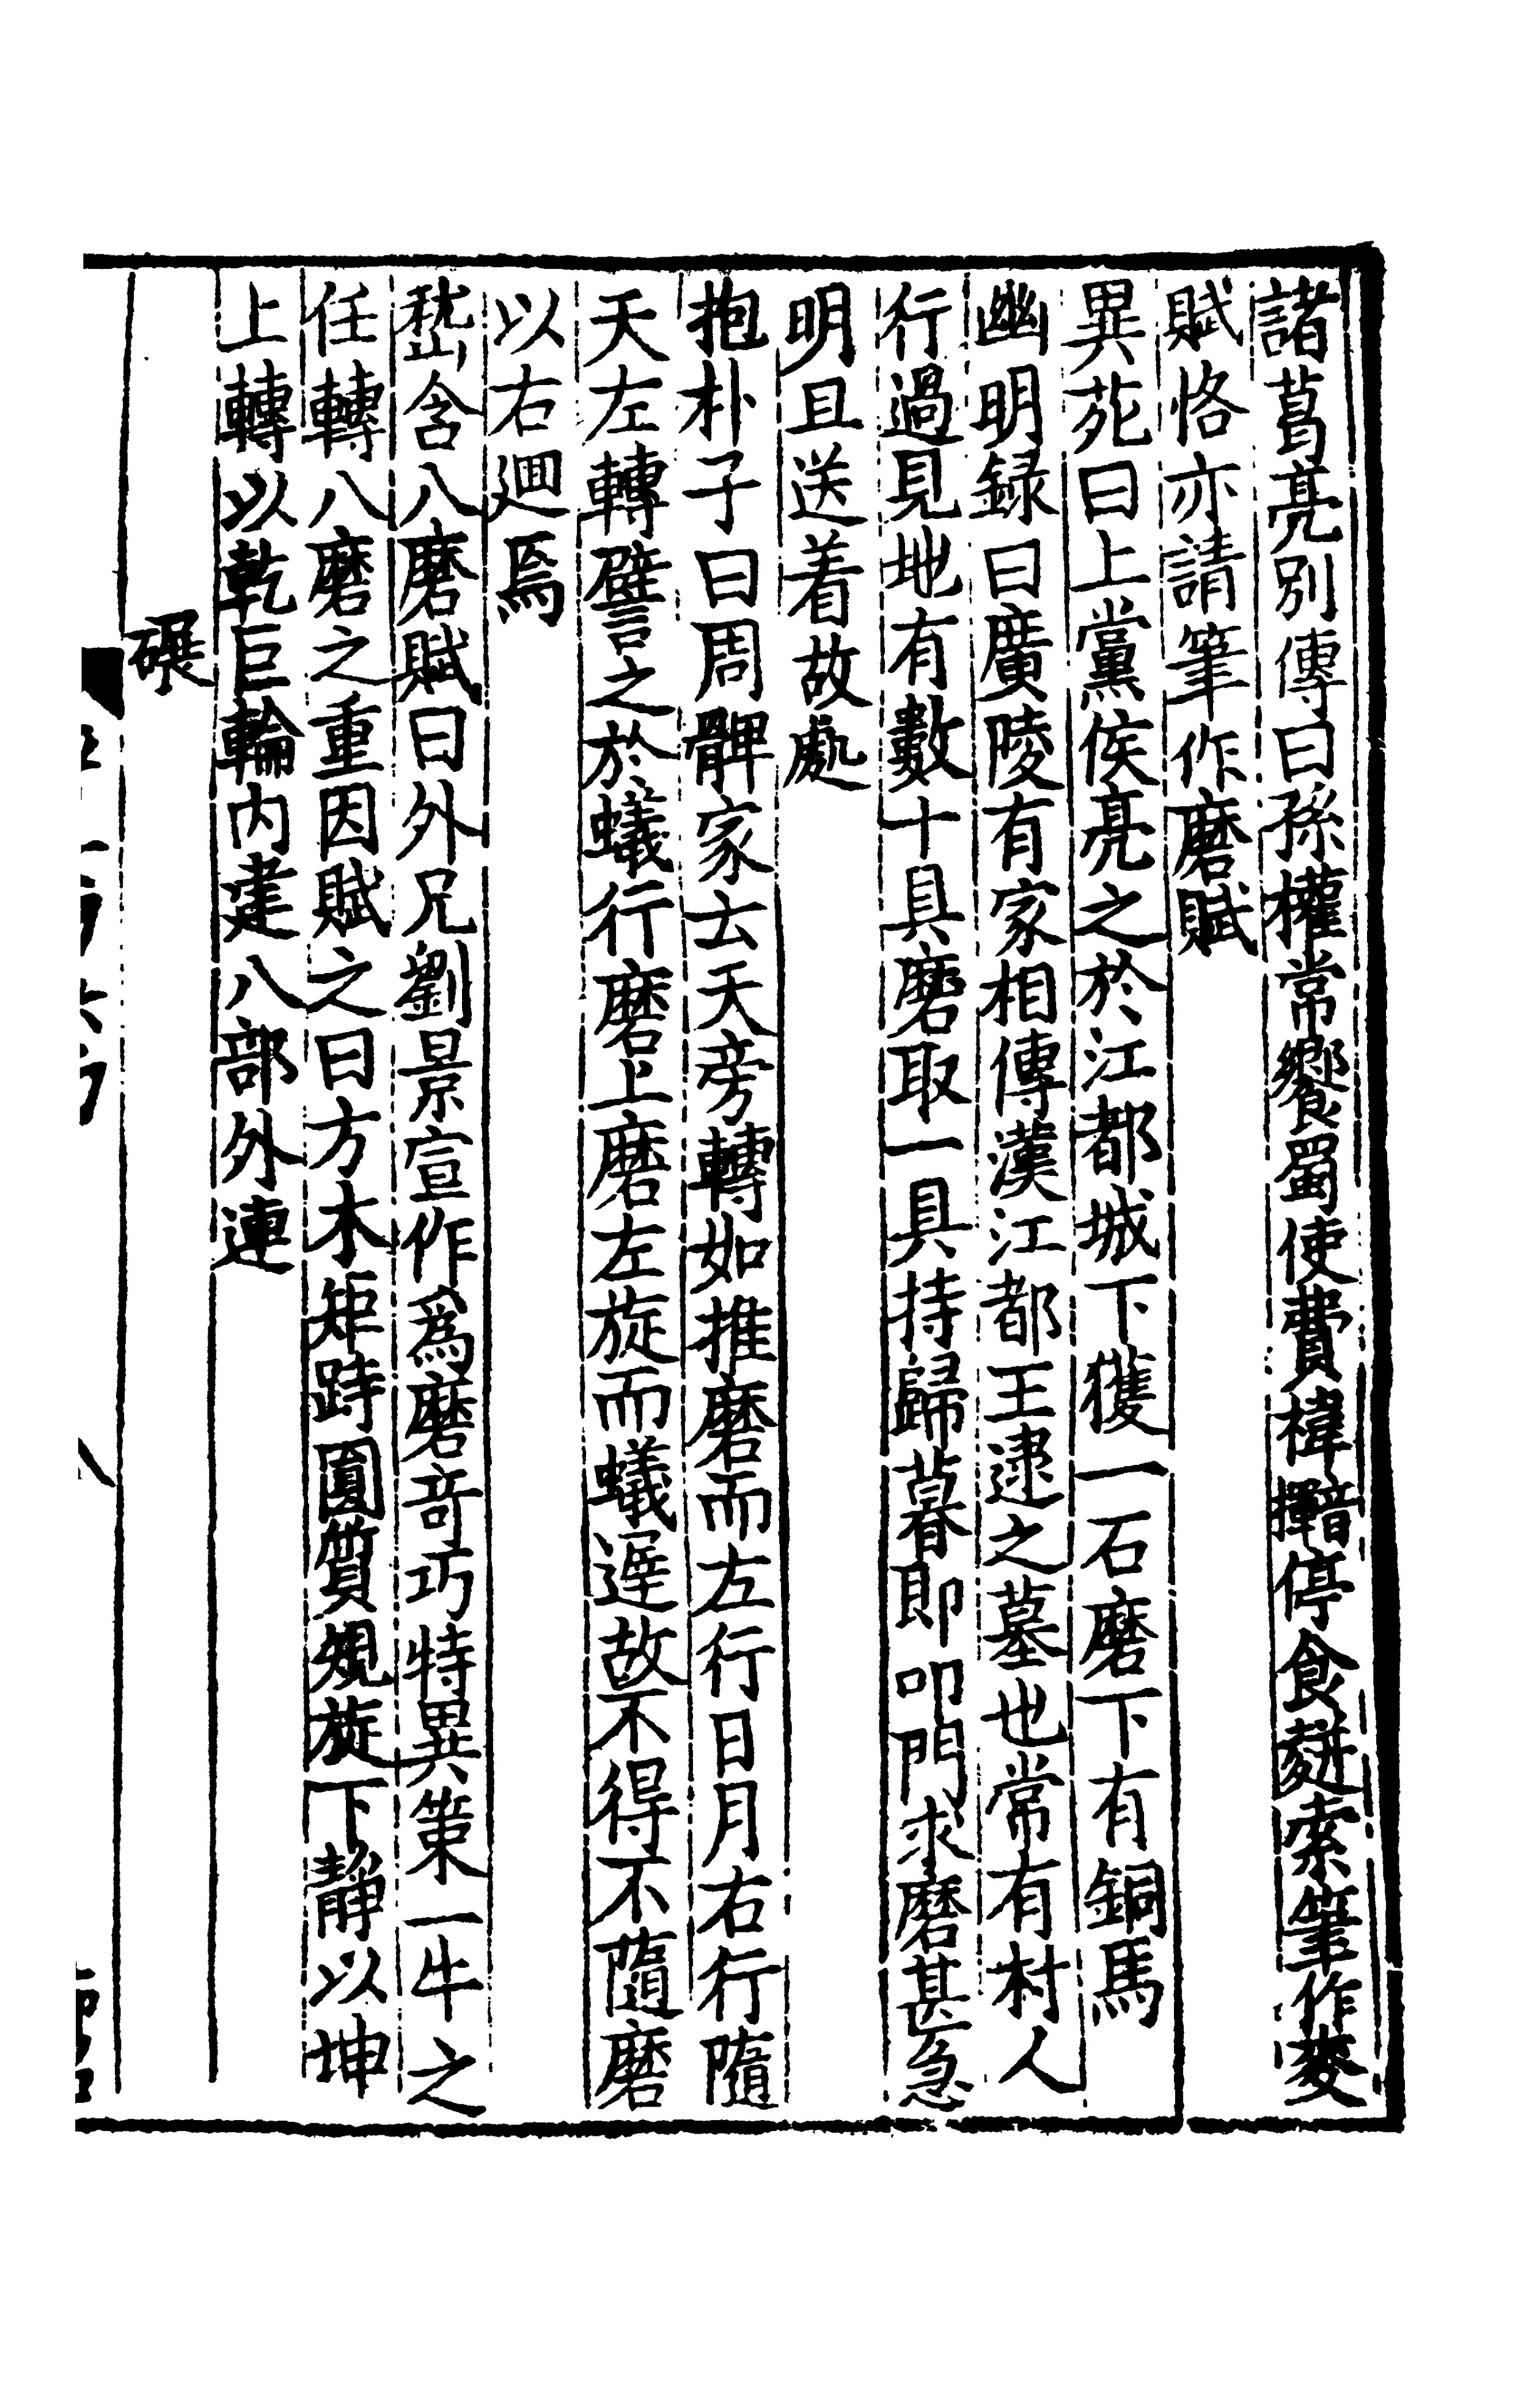 諸葛亮別傳曰孫權常饗蜀使費禕禕䭓停食䴵索筆作麥
賦恪亦請筆作磨賦
異苑曰上黨侯亮之於江都城下獲一石磨下有銅馬
幽明録曰廣陵有家相傳漢江都王建之墓也常有村人
行過見地有數十具磨取一具持歸暮即叩門求磨甚急
明旦送着故處
抱朴子曰周髀家云天旁轉如推磨而左行日月右行隨
天左轉譬之於蟻行磨上磨左旋而蟻遲故不得不隨磨
以右迴焉
嵇含八磨賦曰外兄劉景宣作爲磨竒巧特異策一牛之
任轉八磨之重因賦之曰方木矩跱圓質規旋下靜以坤
上轉以乾巨輪内建八部外連
碾